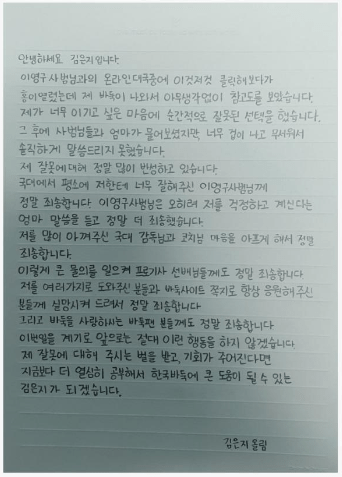 안녕하세요 김은지입니다.
이영구사범님과의 온라인대국중에 이것저것 클릭해보다가
홍이열렸는데 제 바둑이 나와서 아무생각없이 참고도를 보았습니다.
제가 너무 이기고 싶은 마음에 순간적으로 잘못된 선택을 했습니다.
그 후에 사범님들과 엄마가 물어보셨지만, 너무 겁이 나고 무서워서
솔직하게 말씀드리지 못했습니다.
제 잘못에대해 정말 많이 반성하고 있습니다.
국대에서 평소에 저한테 너무 잘해주신 이영구사범님께
정말 죄송합니다. 이영구사범님은 오히려 저를 걱정하고 계신다는
엄마 말씀을 듣고 정말 더 죄송했습니다.
저를 많이 아껴주신 국대 감독님과 코치님 마음을 아프게 해서 정말
죄송합니다.
이렇게 큰 물의를 일으켜 프로기사 선배님들께도 정말 죄송합니다
저를 여러가지로 도와주신 분들과 바둑사이트 쪽지로 항상 응원해주신
분들께 실망시켜 드려서 정말 죄송합니다
그리고 바둑을 사랑하시는 바둑팬 분들께도 정말 죄송합니다
이번일을 계기로 앞으로는 절대 이런 행동을 하지 않겠습니다
제 잘못에 대해 주시는 벌을 받고, 기회가 주어진다면
지금보다 더 열심히 공부해서 한국바둑에 큰 도움이 될 수 있는
김은지가 되겠습니다.
김은지 올림